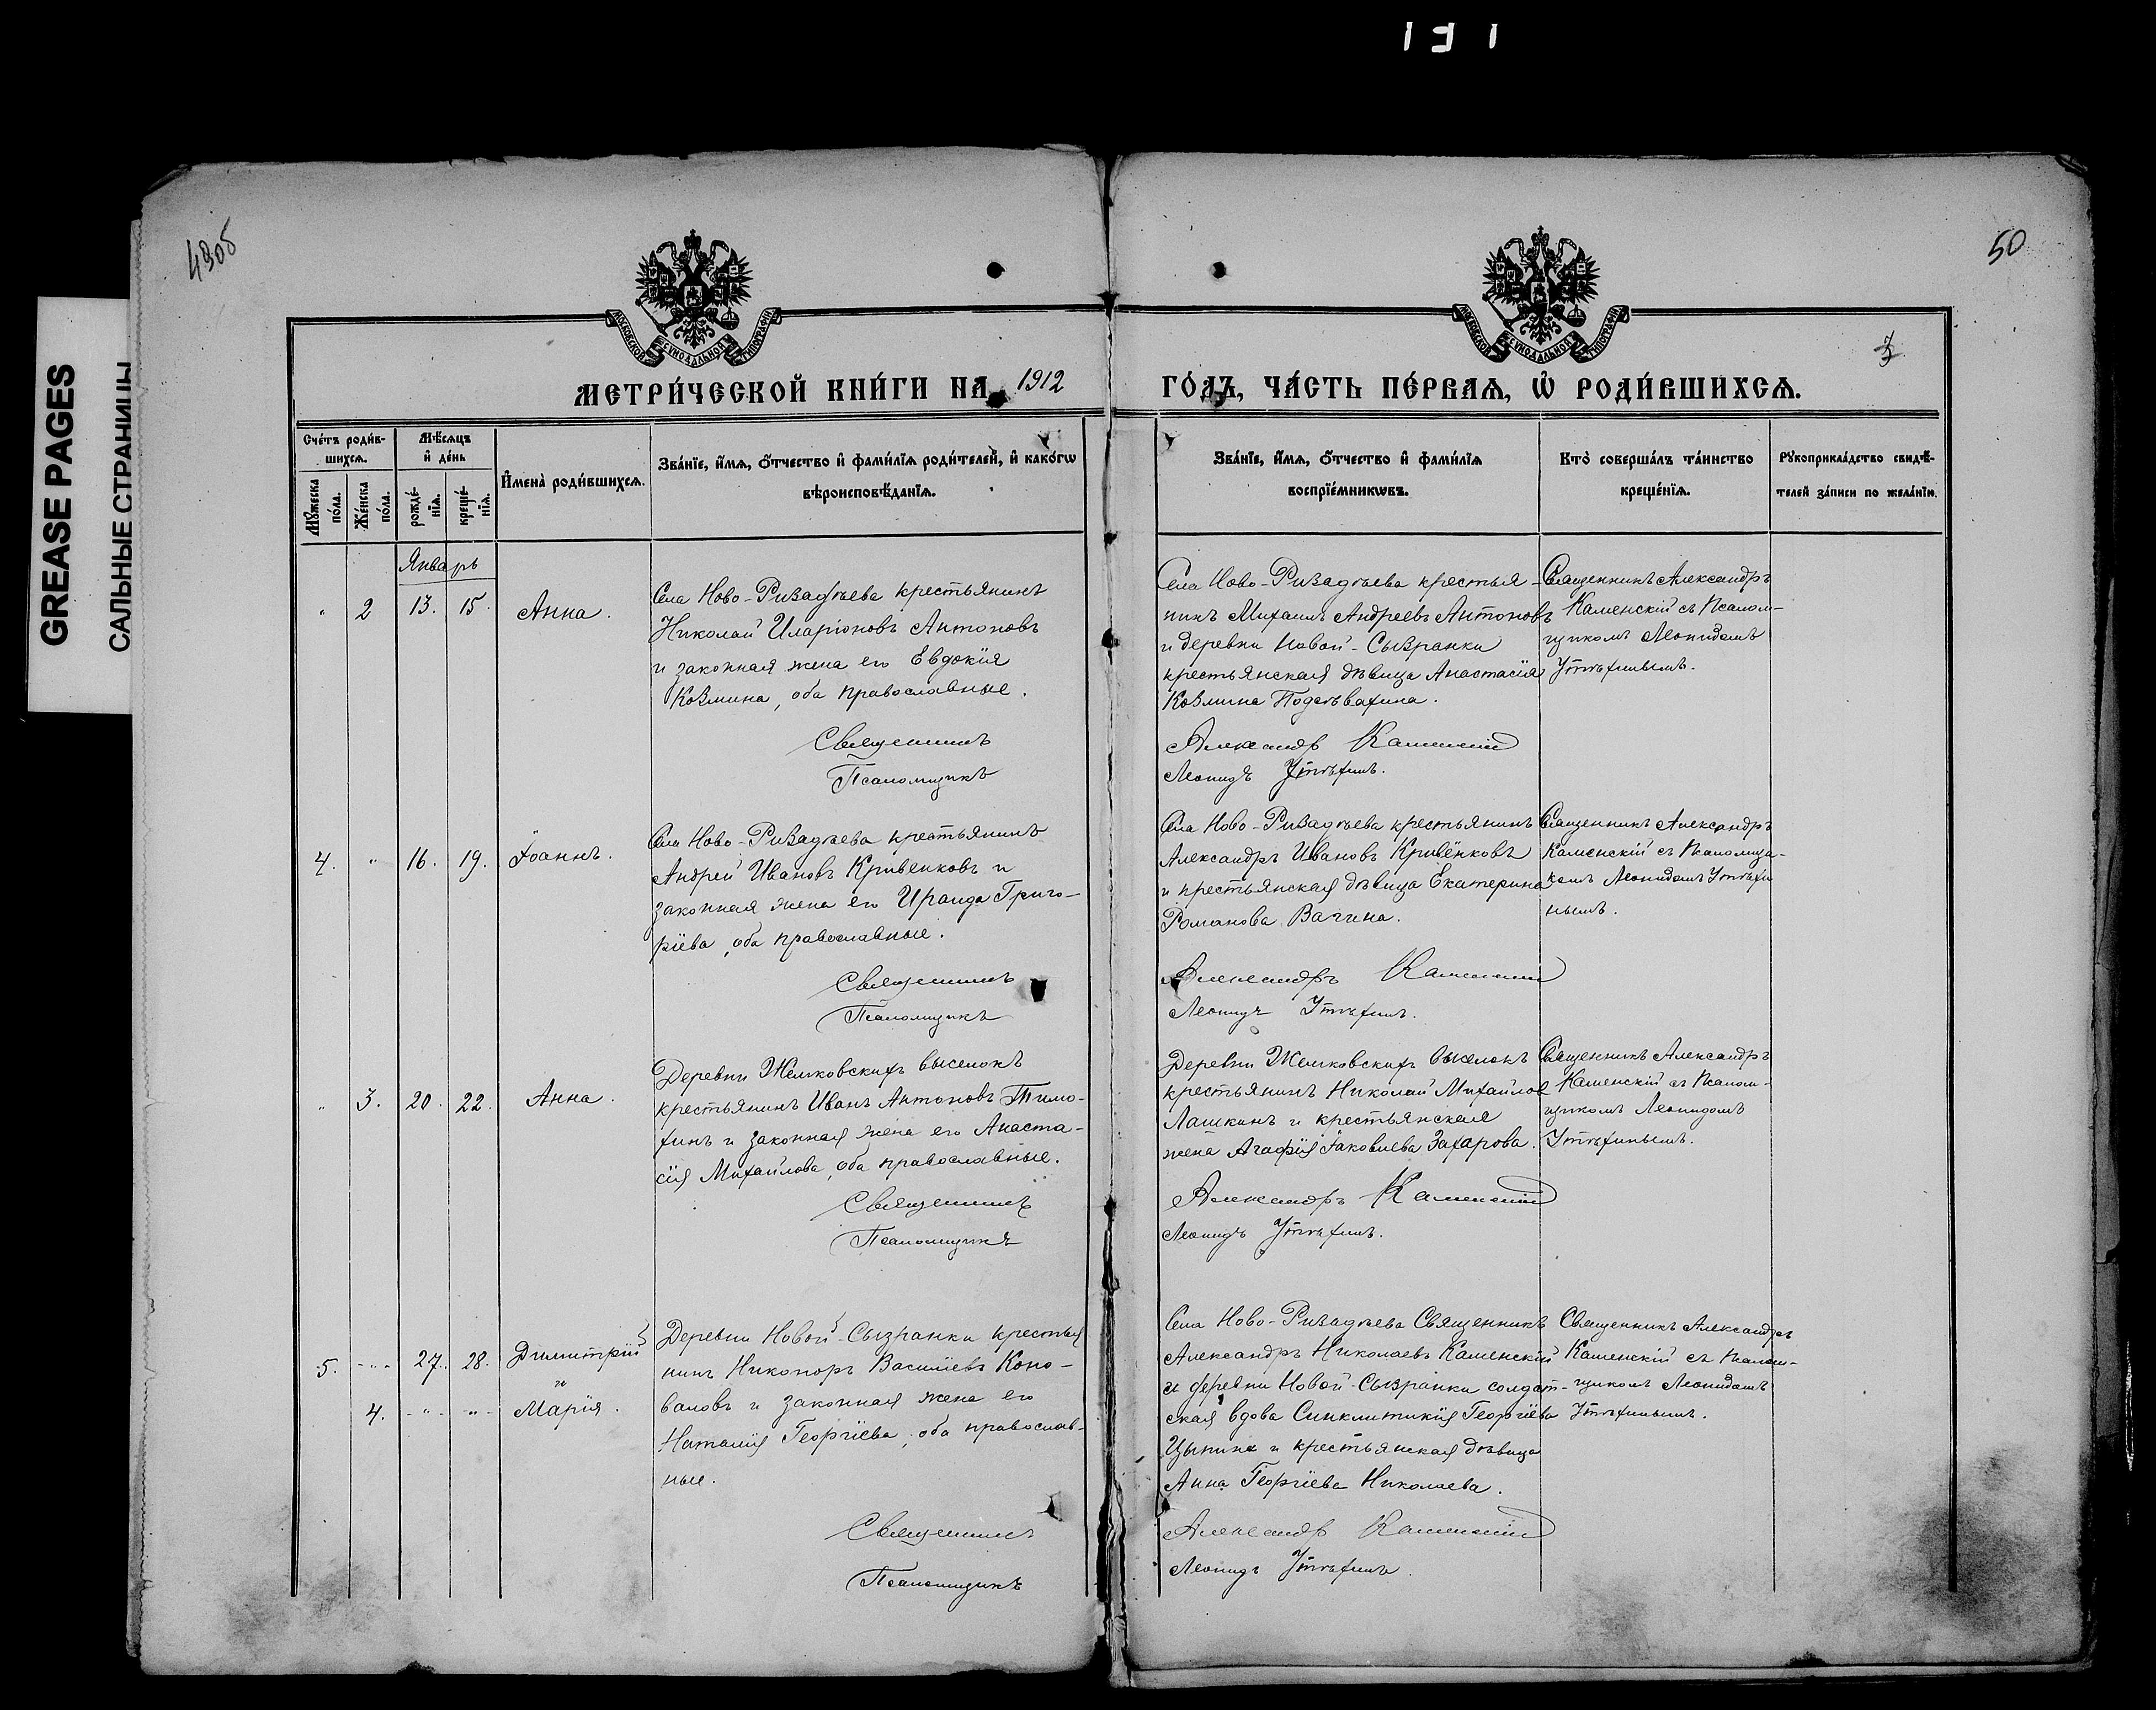 131
GREASE PAGES
САЛЬНЫЕ СТРАНИЦЫ
49об
50
МОСКОВСКОЙ СѴНОДАЛЬНОЙ ТИПОГРАФІИ
МОСКОВСКОЙ СѴНОДАЛЬНОЙ ТИПОГРАФІИ
3
МЕТРИ́ЧЕСКОЙ КНИ́ГИ НА 1912 ГО́ДЪ, ЧА́СТЬ ПЕ́РВАѦ, Ѡ҆ РОДИ́ВШИХСѦ.
Сче́тъ роди́в-
шихсѧ.
Мꙋ́жеска по́ла.
Же́нска по́ла.
Мѣ́сѧцъ
и҆ де́нь
рожде́-
нїѧ.
креще́-
нїѧ.
И҆мена̀ роди́вшихсѧ.
Зва́нїе, и҆́мѧ, ѻ҆́тчество и҆ фами́лїѧ роди́телей, и҆ како́гѡ
вѣроисповѣ́данїѧ.
Зва́нїе, и҆́мѧ, ѻ҆́тчество и҆ фами́лїѧ
воспрїе́мникѡвъ.
Кто̀ соверша́лъ та́инство
креще́нїѧ.
Рꙋкоприкла́дство свидѣ́-
телей за́писи по жела́нїю.
Январь
" 2 13. 15. Анна.
Села Ново-Ризадѣева крестьянинъ
Николай Иларіоновъ Антоновъ
и законная жена его Евдокія
Козмина, оба православные.
Священникъ
Псаломщикъ
Села Ново-Ризадѣева крестья-
нинъ Михаилъ Андреевъ Антоновъ
и деревни Новой-Сызранки
крестьянская дѣвица Анастасія
Козмина Подсѣвахина.
Александръ Каменскій
Леонидъ Утѣхинъ.
Священникъ Александръ
Каменскій съ псалом-
щикомъ Леонидомъ
Утѣхинымъ.
4. " 16. 19. Іоаннъ.
Села Ново-Ризадѣева крестьянинъ
Андрей Ивановъ Кривенковъ и
законная жена его Ираида Григо-
ріева, оба православные.
Священникъ
Псаломщикъ
Села Ново-Ризадѣева крестьянинъ
Александръ Ивановъ Кривенковъ
и крестьянская дѣвица Екатерина
Романова Вагина.
Александръ Каменскій
Леонидъ Утѣхинъ.
Священникъ Александръ
Каменскій съ псаломщи-
комъ Леонидомъ Утѣхи
нымъ.
" 3. 20. 22. Анна.
Деревни Жемковскихъ выселокъ
крестьянинъ Иванъ Антоновъ Тимо-
хинъ и законная жена его Анаста-
сія Михайлова, оба православные.
Священникъ
Псаломщикъ
Деревни Жемковскихъ выселокъ
крестьянинъ Николай Михайлов
Лашкинъ и крестьянская
жена Агафія Іаковлева Захарова.
Александръ Каменскій
Леонидъ Утѣхинъ.
Священникъ Александръ
Каменскій съ псалом-
щикомъ Леонидомъ
Утѣхинымъ.
5. -"- 27. 28. Димитрій
и
4. -"- -"- Марія.
Деревни Новой-Сызранки крестья
нинъ Никоноръ Василіевъ Коно-
валовъ и законная жена его
Наталія Георгіева, оба православ-
ные.
Священникъ
Псаломщикъ
Села Ново-Ризадѣева Священникъ
Александръ Николаевъ Каменскій
и деревни Новой-Сызранки солдат-
ская вдова Синклитикія Георгіева
Цыпина и крестьянская дѣвица
Анна Георгіева Николаева.
Александръ Каменскій
Леонидъ Утѣхинъ.
Священникъ Александръ
Каменскій съ псалом-
щикомъ Леонидомъ
Утѣхинымъ.